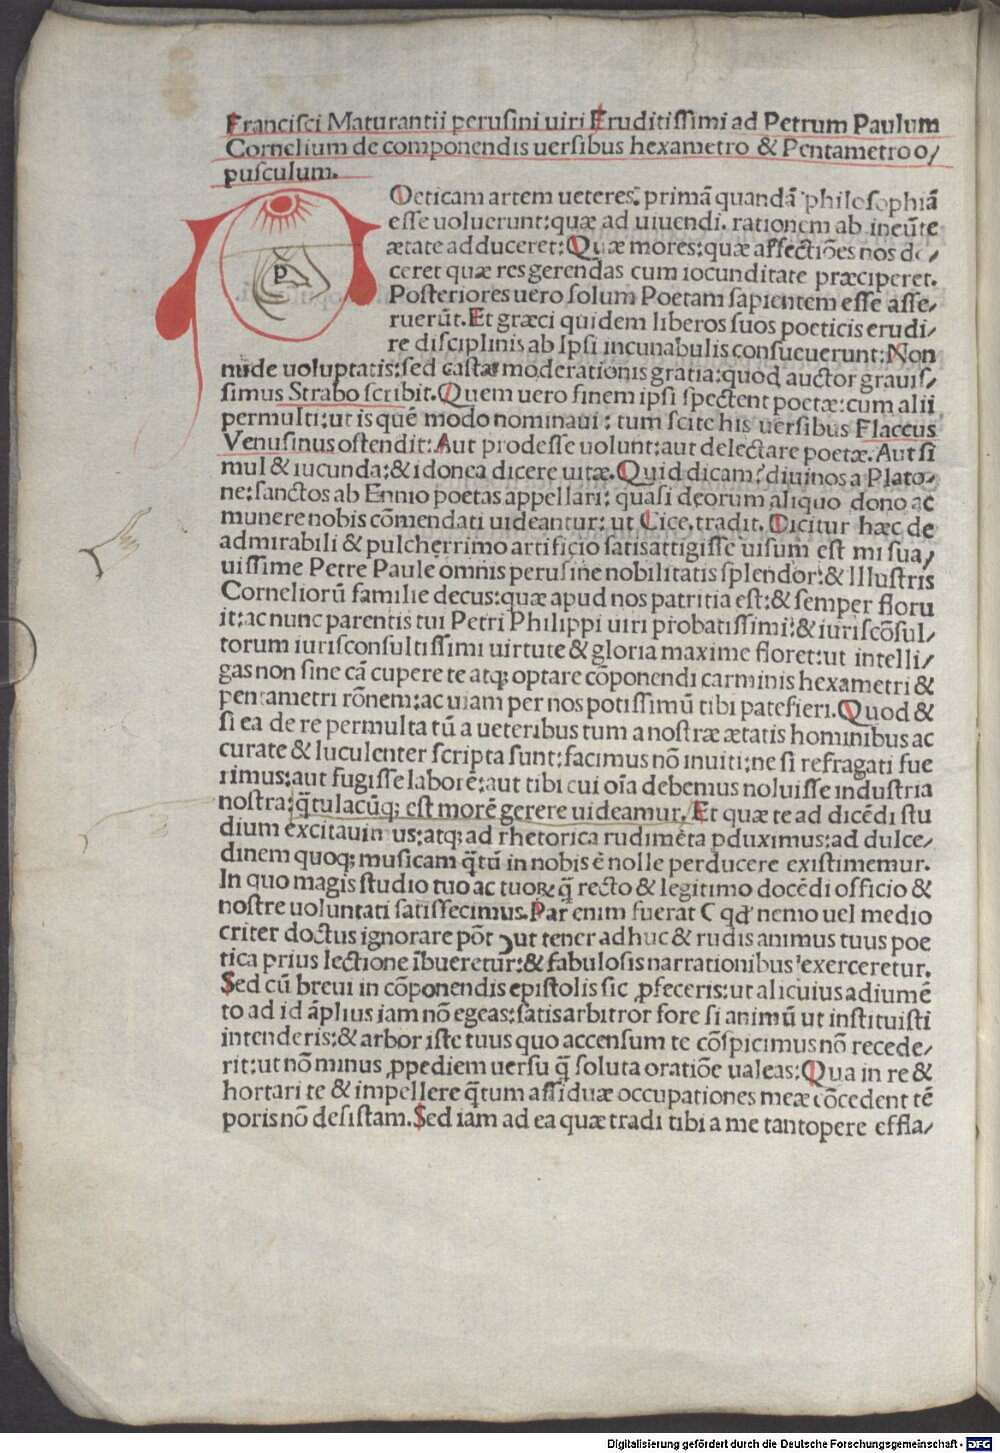 Francisci Maturantii perusini uiri Eruditissimi ad Petrum Paulum
Cornelium de componendis uersibus hexametro & Pentametro o/
pusculum.
p
Oeticam artem ueteres: primā quandā philosophiā
esse uoluerunt: quæ ad uiuendi. rationem ab ineūte
ætate adduceret: Quæ mores: quæ affectiōes nos do/
ceret quæ res gerendas cum iocunditate præciperet.
Posteriores uero solum Poetam sapientem esse asse/
ruerūt. Et græci quidem liberos suos poeticis erudi/
re disciplinis ab Ipsi incunabulis consueuerunt: Non
nude uoluptatis: sed castæ moderationis gratia: quod auctor grauis/
simus Strabo scribit. Quem uero finem ipsi spectent poetæ: cum alii
permulti: ut is quē modo nominaui: tum scite his uersibus Flaccus
Venusinus ostendit: Aut prodesse uolunt: aut delectare poetæ. Aut si
mul & iucunda: & idonea dicere uitæ. Quid dicam? diuinos a Plato/
ne: sanctos ab Ennio poetas appellari: quasi deorum aliquo dono ac
munere nobis cōmendati uideantur: ut Cice. tradit. Dicitur hæc de
admirabili & pulcherrimo artificio satis attigisse uisum est mi sua/
uissime Petre Paule omnis perusine nobilitatis splendor: & Illustris
Corneliorū familie decus: quæ apud nos patritia est: & semper floru
it: ac nunc parentis tui Petri Philippi uiri probatissimi: & iuriscōsul/
torum iurisconsultissimi uirtute & gloria maxime floret: ut intelli/
gas non sine cā cupere te atq; optare cōponendi carminis hexametri &
pentametri rōnem: ac uiam per nos potissimū tibi patefieri. Quod &
si ea de re permulta tū a ueteribus tum a nostræ ætatis hominibus ac
curate & luculenter scripta sunt: facimus nō inuiti: ne si refragati fue
rimus: aut fugisse laborē: aut tibi cui oīa debemus noluisse industria
nostra: q̄tulacūq; est morē gerere uideamur. Et quæ te ad dicēdi stu
dium excitauimus: atq; ad rhetorica rudimēta pduximus: ad dulce/
dinem quoq; musicam q̄tū in nobis ē nolle perducere existimemur.
In quo magis studio tuo ac tuoꝝ q̄ recto & legitimo docēdi officio &
nostre uoluntati satisfecimus. Par enim fuerat C qd' nemo uel medio
criter doctus ignorare pōt Ɔ ut tener adhuc & rudis animus tuus poe
tica prius lectione ībueretur: & fabulosis narrationibus exerceretur.
Sed cū breui in cōponendis epistolis sic ꝓfeceris: ut alicuius adiumē
to ad id āplius iam nō egeas: satis arbitror fore si animū ut instituisti
intenderis: & arbor iste tuus quo accensum te cōspicimus nō recede/
rit: ut nō minus ꝓpediem uersu q̄ soluta oratiōe ualeas: Qua in re &
hortari te & impellere q̄tum assiduæ occupationes meæ cōcedent tē
poris nō desistam. Sed iam ad ea quæ tradi tibi a me tantopere effla/
Digitalisierung gefördert durch die Deutsche Forschungsgemeinschaft - DFG